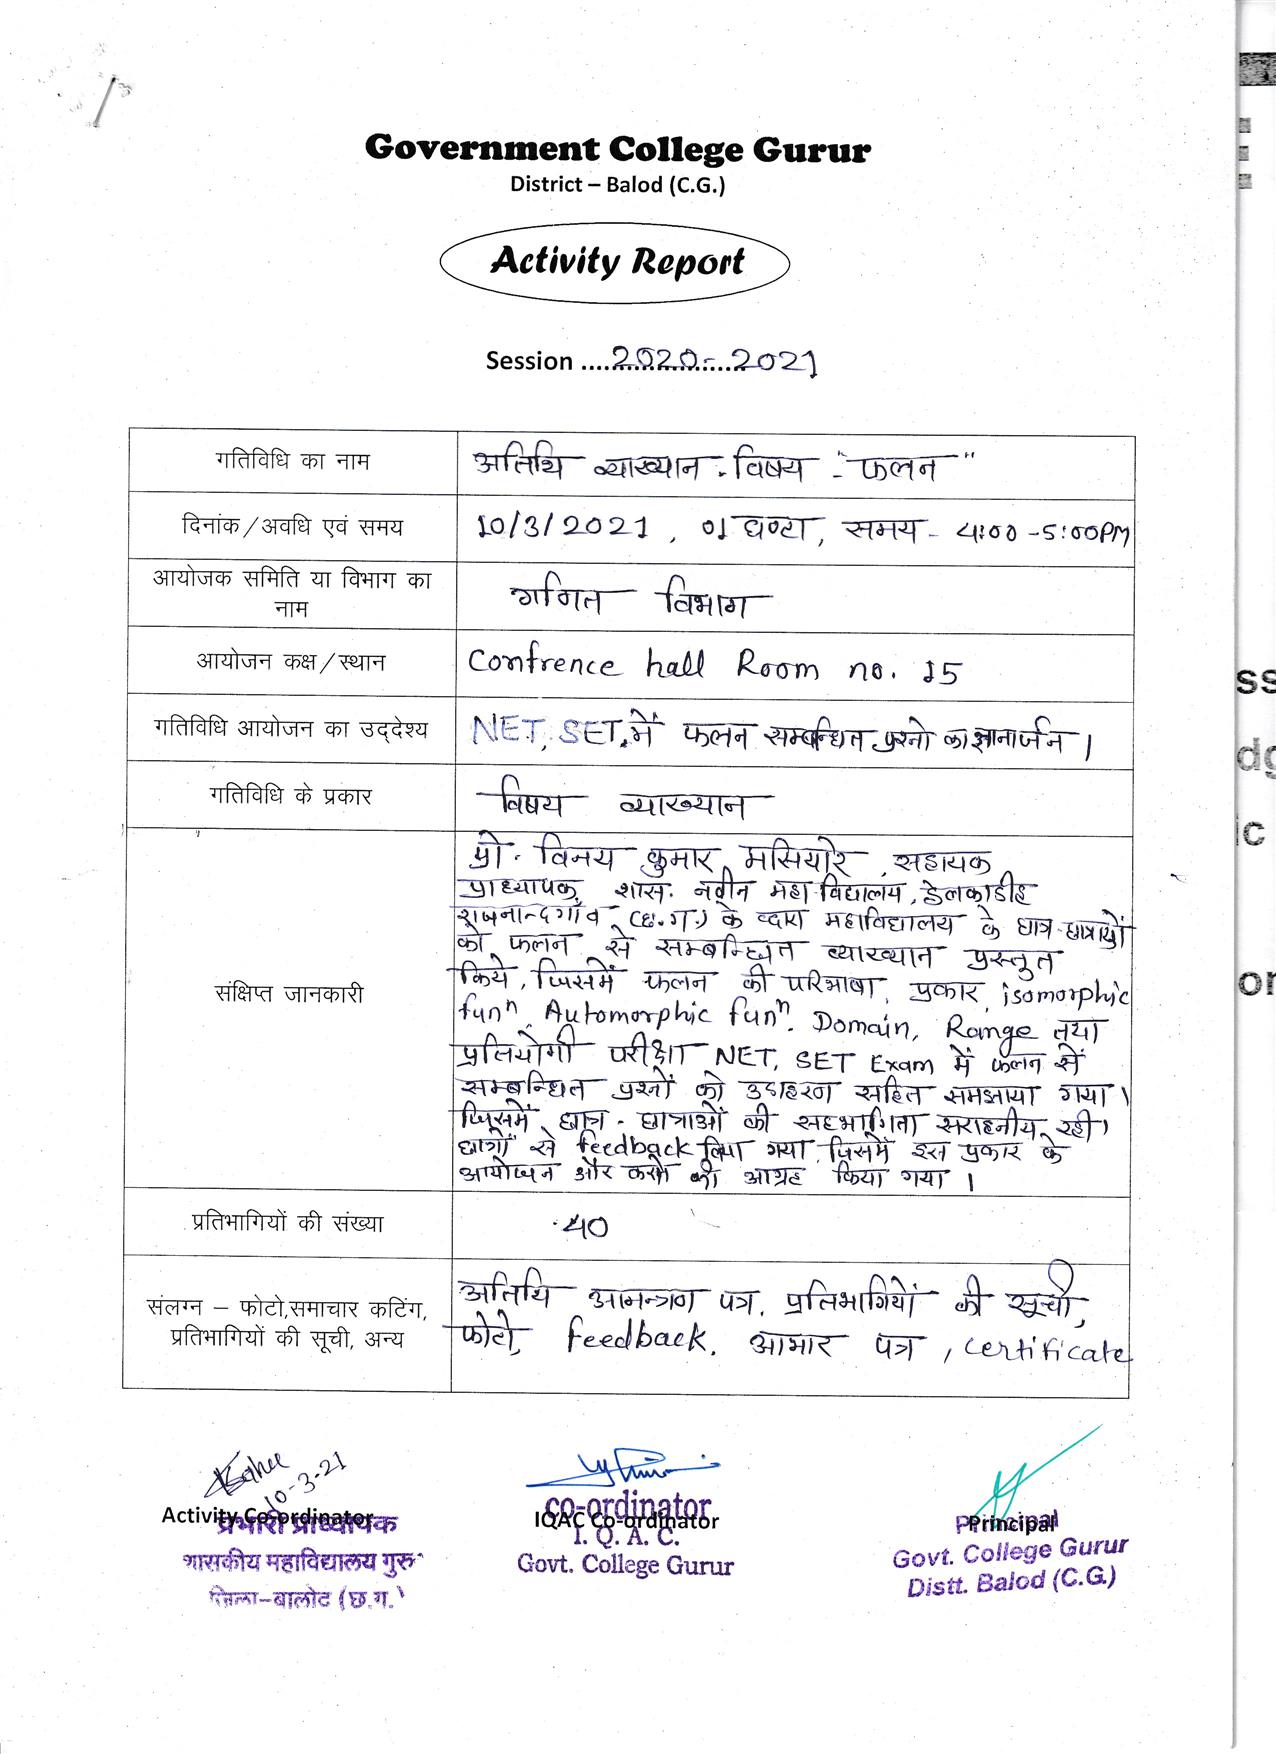 Government College Gurur
District – Balod (C.G.)
Activity Report
Session ....2020-2021
गतिविधि का नाम
अतिथि व्याख्यान - विषय - "फलन"
दिनांक/अवधि एवं समय
10/3/2021 , 01 घण्टा, समय - 4:00 -5:00PM
आयोजक समिति या विभाग का
नाम
गणित विभाग
आयोजन कक्ष/स्थान
Confrence hall Room no. 15
गतिविधि आयोजन का उद्देश्य
NET, SET, में फलन सम्बन्धित प्रश्नो का ज्ञानार्जन ।
गतिविधि के प्रकार
विषय व्याख्यान
संक्षिप्त जानकारी
प्रो. विनय कुमार मसियारे, सहायक
प्राध्यापक, शास. नवीन महाविद्यालय,
राजनान्दगाँव (छ.ग.) के व्दारा महाविद्यालय के छात्र-छात्राओं
को फलन से सम्बन्धित व्याख्यान प्रस्तुत
किये, जिसमें फलन की परिभाषा, प्रकार, isomorphic
funⁿ, Automorphic funⁿ. Domain, Range तथा
प्रतियोगी परीक्षा NET, SET Exam में फलन से
सम्बन्धित प्रश्नों को उदाहरण सहित समझाया गया।
जिसमें छात्र - छात्राओं की सहभागिता सराहनीय रही।
छात्रों से feedback लिया गया, जिसमें इस प्रकार के
आयोजन और करने की आग्रह किया गया ।
प्रतिभागियों की संख्या
40
संलग्न – फोटो,समाचार कटिंग,
प्रतिभागियों की सूची, अन्य
अतिथि आमन्त्रण पत्र, प्रतिभागियों की सूची,
फोटो, feedback, आभार पत्र , certificate
10-3-21
Activity Co-ordinator
प्रभारी प्राध्यापक
शासकीय महाविद्यालय गुरु
जिला-बालोद (छ.ग.)
CO-ordinator
IQAC Co-ordinator
I. Q. A. C.
Govt. College Gurur
Principal
Principal
Govt. College Gurur
Distt. Balod (C.G.)
ss
dg
ic
or